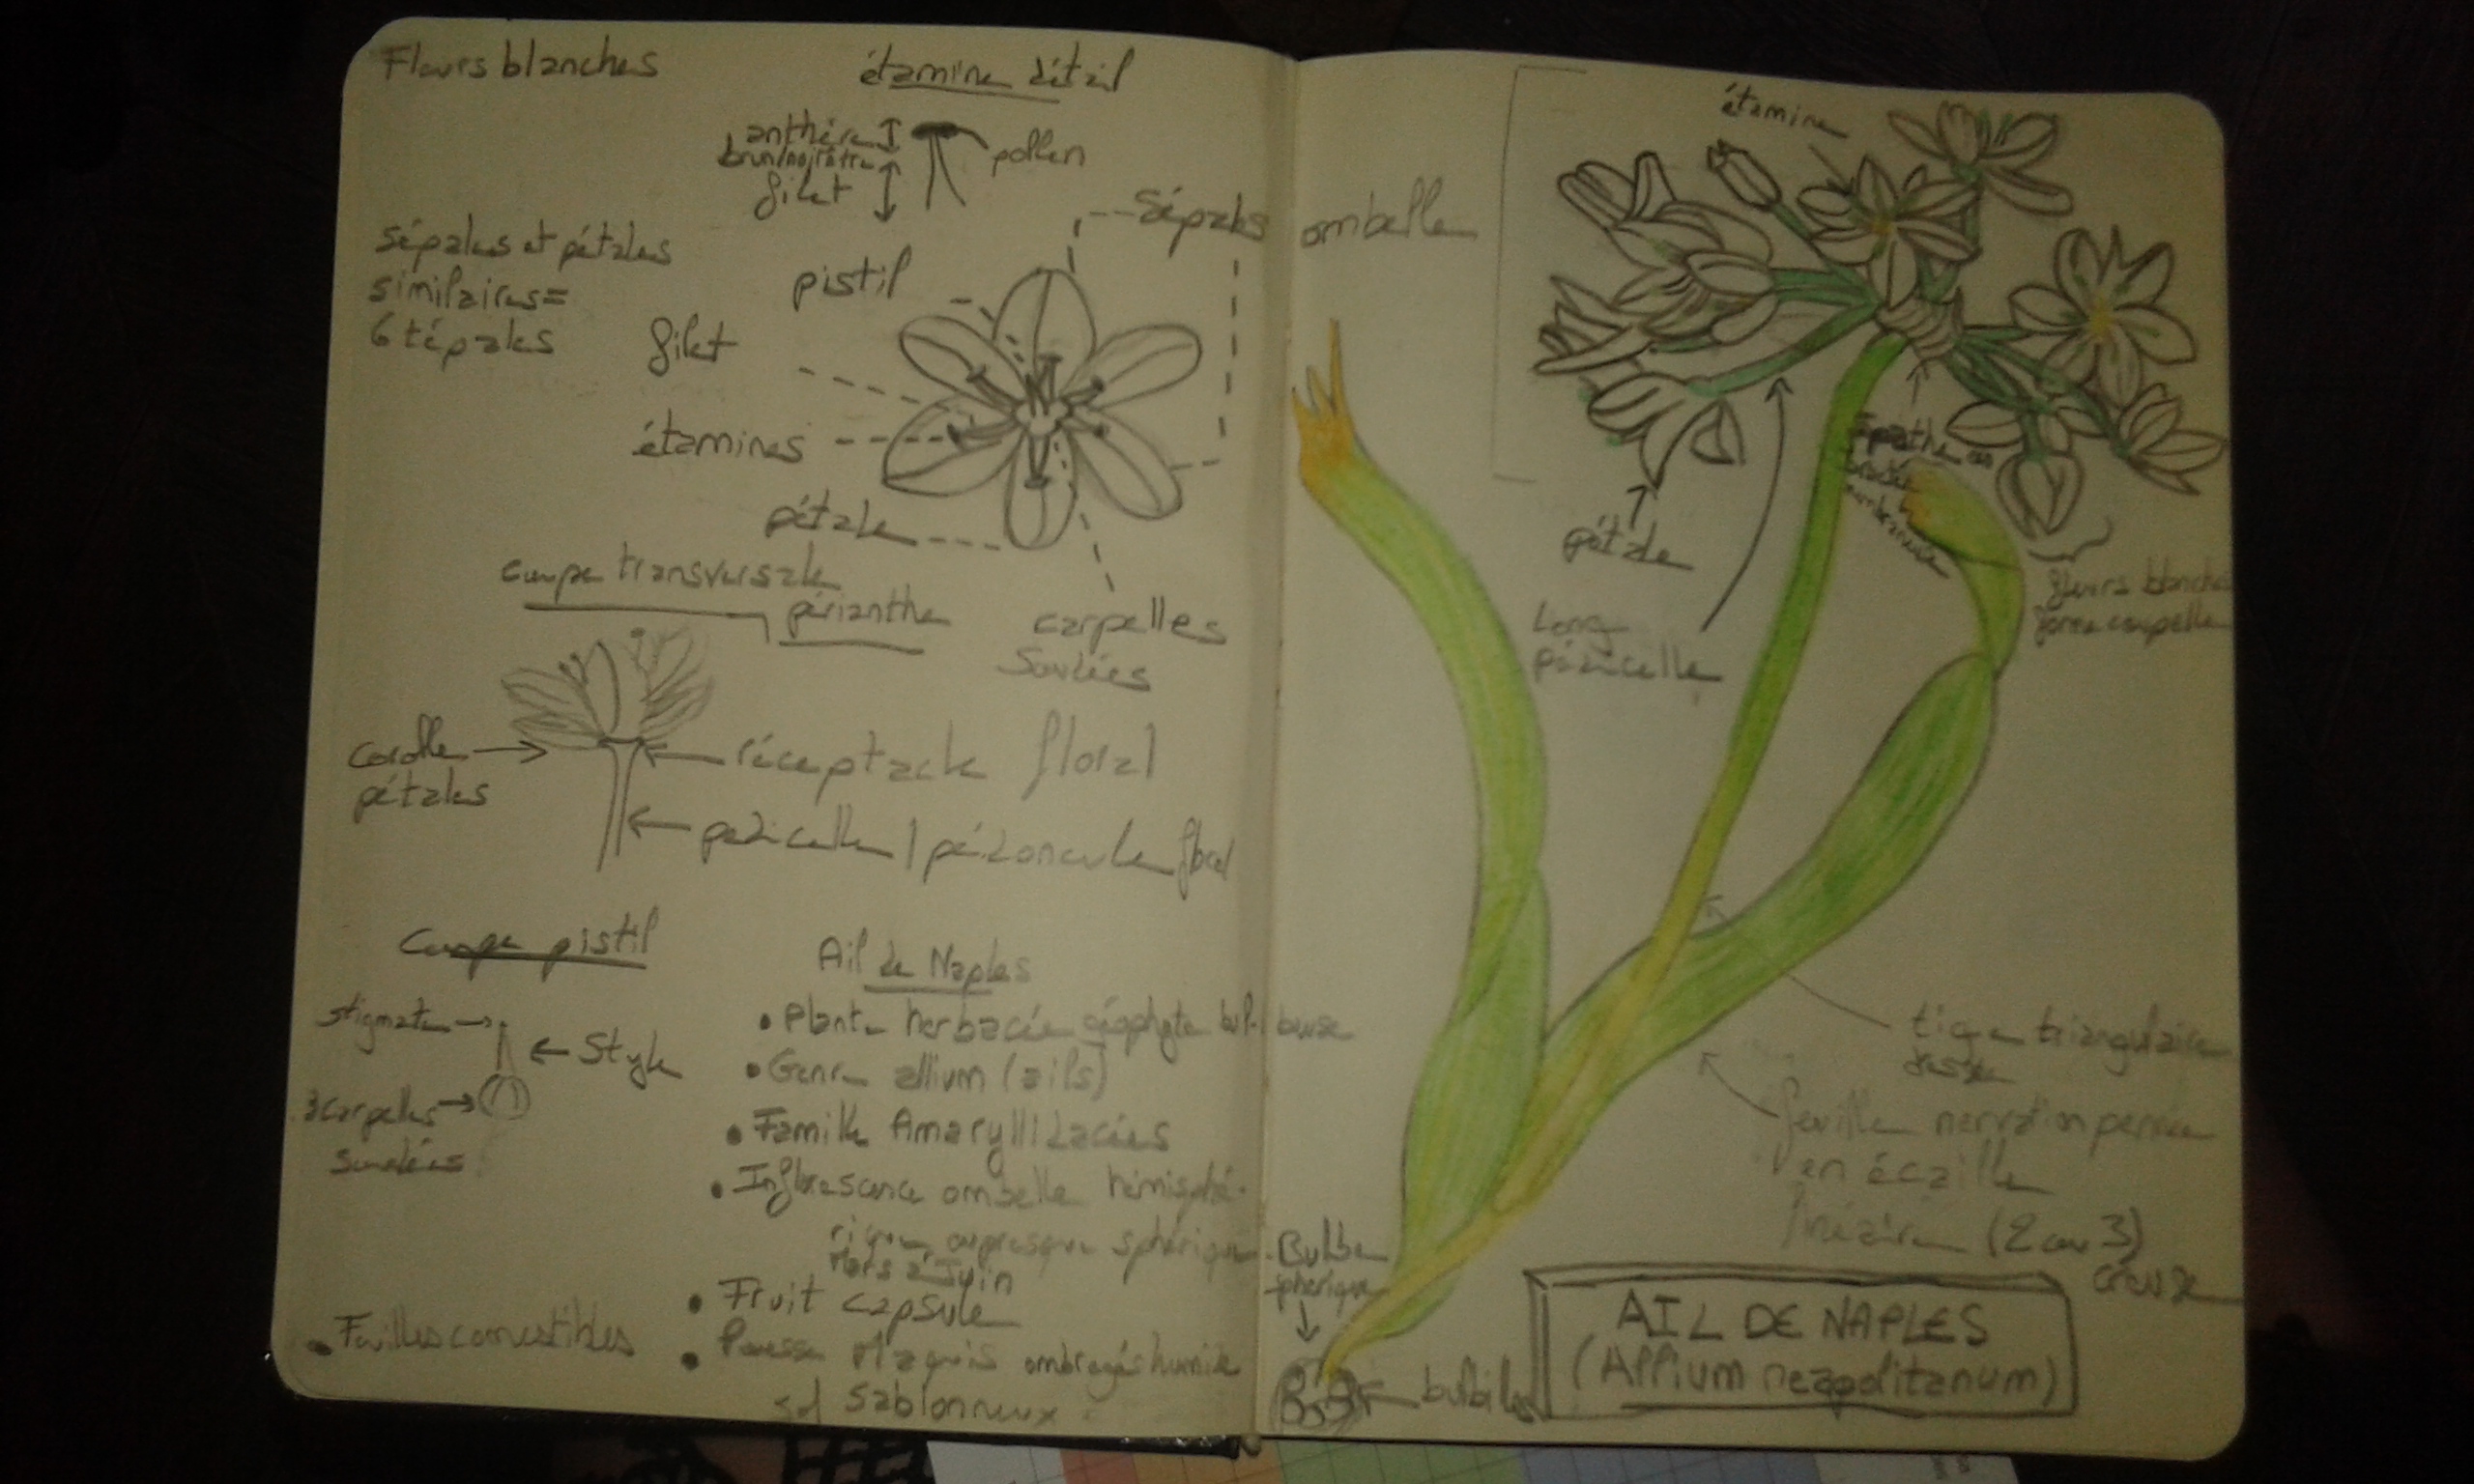 Fleurs blanches
étamine détail
anthère
brun/noirâtre
filet
pollen
sépales et pétales
similaires =
6 tépales
sépales
pistil
filet
étamines
pétale
carpelles
soudées
coupe transversale
périanthe
corolle
pétales
réceptacle floral
pédicelle / pédoncule floral
Coupe pistil
stigmate
style
3 carpelles
soudées
Ail de Naples
• Plante herbacée géophyte bulbeuse
• Genre allium (ails)
• Famille Amaryllidacées
• Inflorescence ombelle hémisphé-
rique ou presque sphérique
Mars à Juin
• Fruit capsule
• Pousse Maquis ombragés humide
sol sablonneux
• Feuilles comestibles
ombelle
étamine
pétale
Long
pédicelle
Spathe
membranacée
fleurs blanches
forme coupelle
tige triangulaire
feuille nervation
en écaille
linéaire (2 ou 3)
creuse
Bulbe
sphérique
bulbilles
AIL DE NAPLES
(Allium neapolitanum)